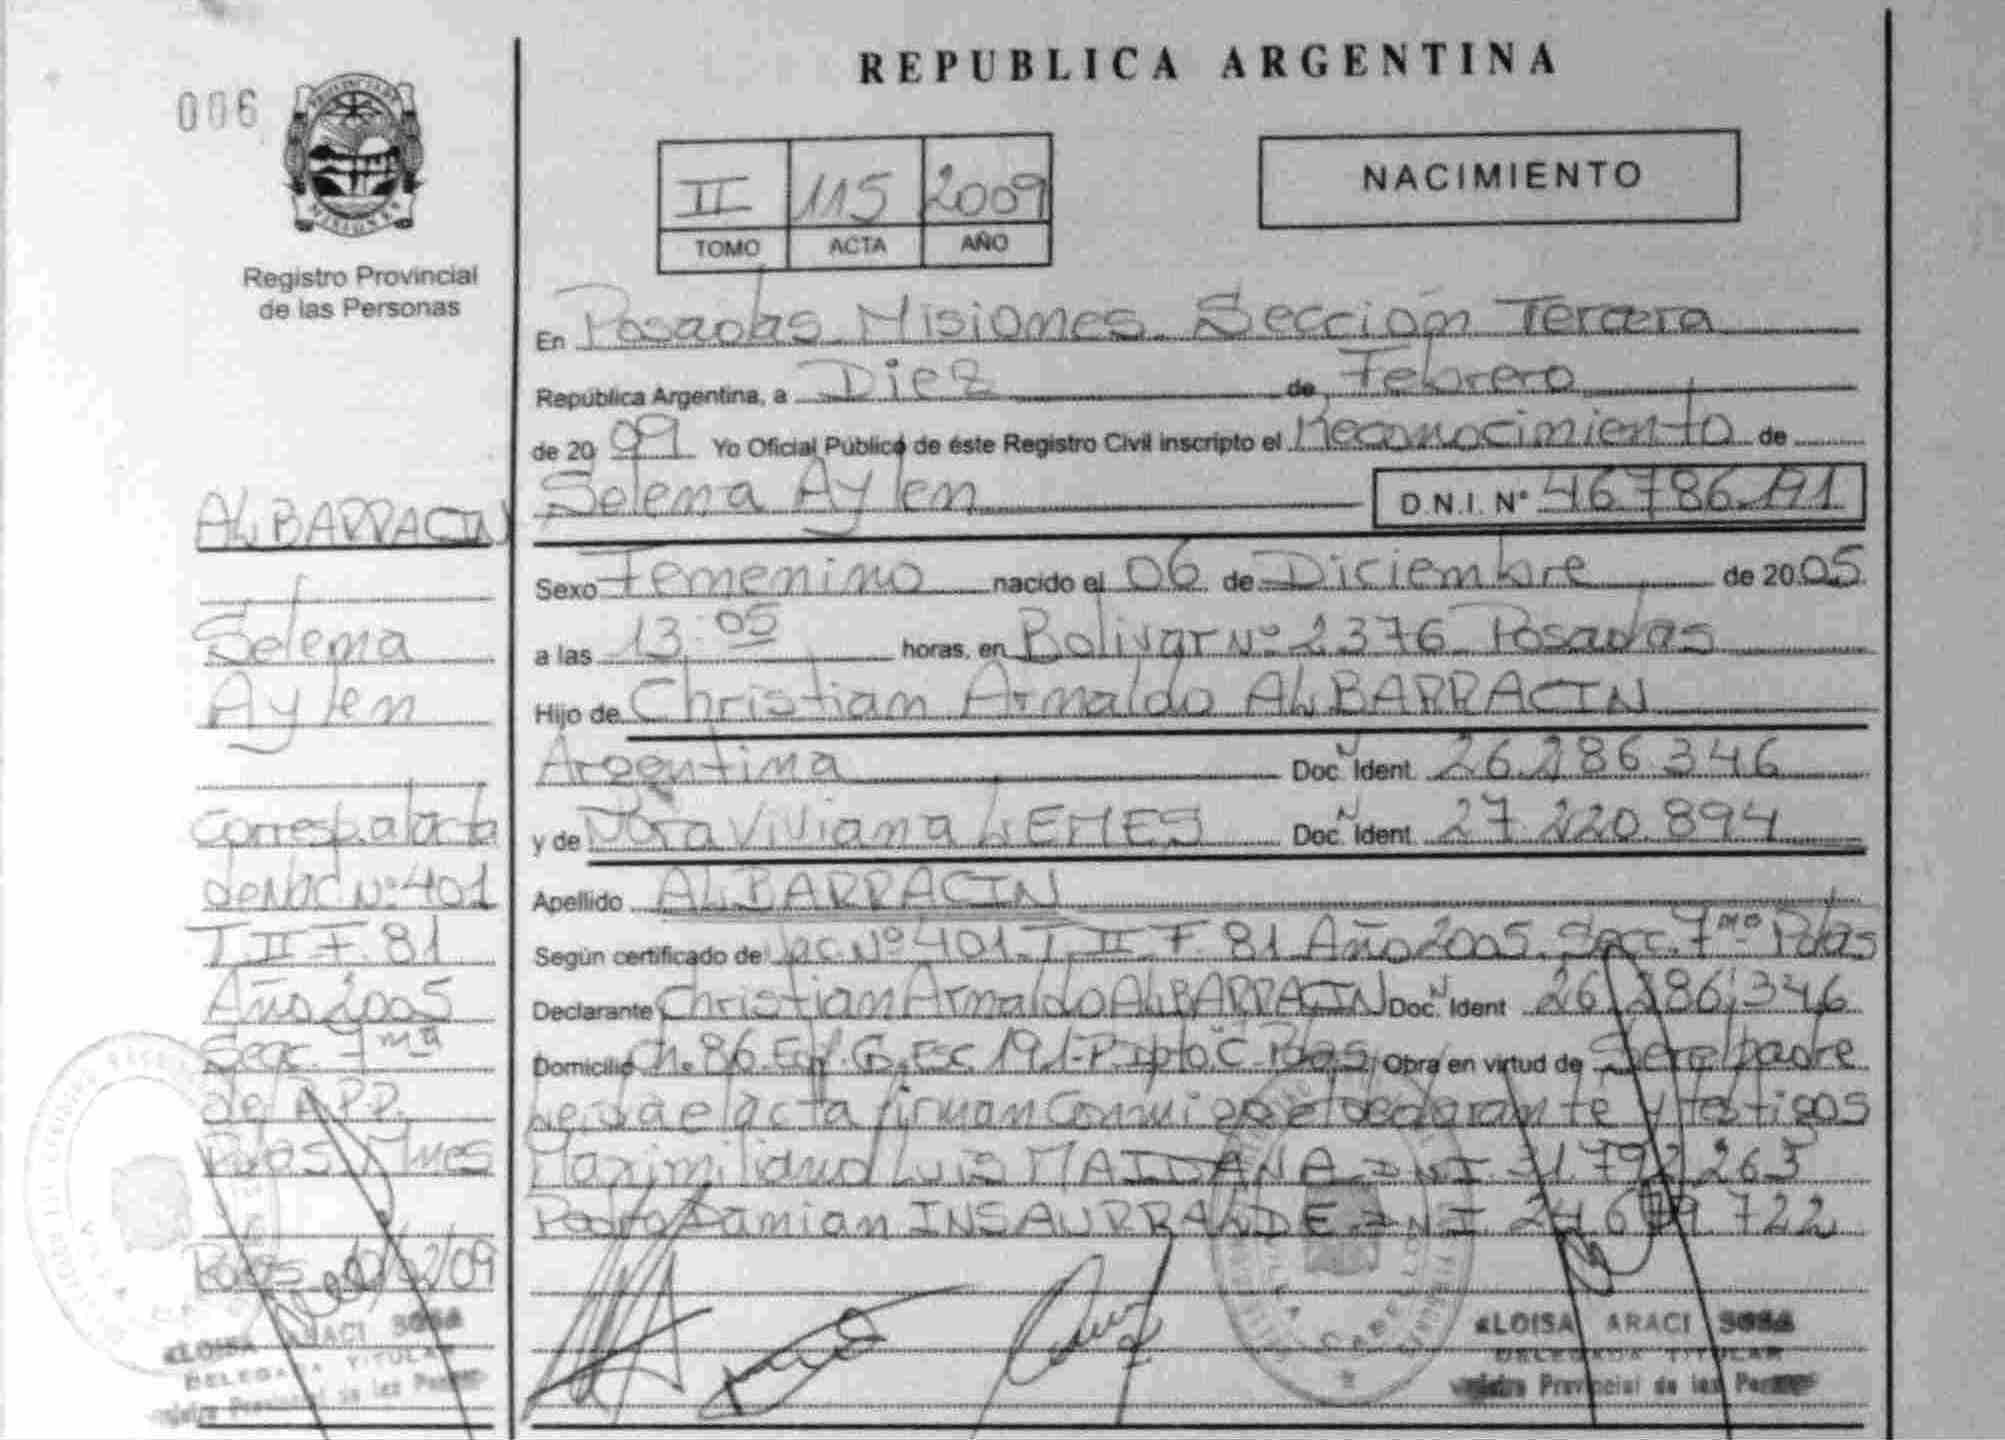 006
Registro Provincial
de las Personas
REPUBLICA ARGENTINA
II 115 2009
TOMO ACTA AÑO
NACIMIENTO
En Posadas Misiones Sección Tercera
República Argentina, a Diez de Febrero
de 2009 Yo Oficial Público de éste Registro Civil inscripto el Reconocimiento de
Selena Aylen D.N.I. N° 46.786.191
Sexo Femenino nacido el 06 de Diciembre de 2005
a las 13:05 horas, en Bolivar N° 2376 Posadas
Hijo de Christian Arnaldo ALBARRACIN
Argentina Doc. Ident. 26.286.346
y de Nora Viviana LEMES Doc. Ident. 27.220.894
Apellido ALBARRACIN
Según certificado de Nac. N° 401 T II F 81 Año 2005 Secc. 7ma Pdas
Declarante Christian Arnaldo ALBARRACIN Doc. Ident 26.286.346
Domicilio Ch. 86 Obra en virtud de Ser el padre
Leida el acta firman Conmigo el declarante y testigos
Maximiliano Luis MAIDANA DNI 31.792.263
Pedro Damian INSAURRALDE DNI 24.679.722
ALBARRACIN
Selena
Aylen
Corresp. al acta
de Nac N° 401
T II F. 81
Año 2005
Secc. 7ma
del R.P.P.
Pdas Mnes
Pdas 10/02/09
ELOISA ARACI SOSA
DELEGADA TITULAR
Registro Provincial de las Personas
ELOISA ARACI SOSA
DELEGADA TITULAR
Registro Provincial de las Personas